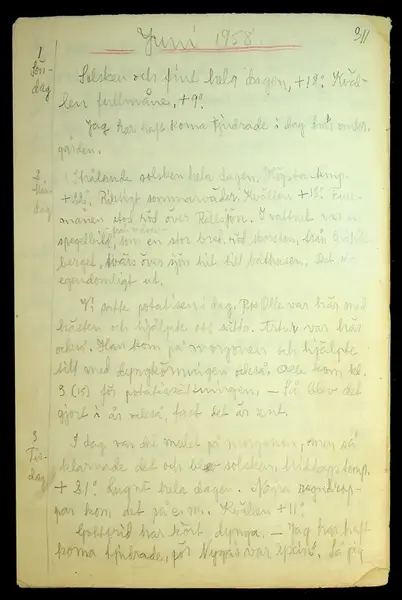 Juni 1958.
1 Sön-
dag
Solsken och fint hela dagen, +18° Kväl-
len fullmåne, +9°.
Jag har haft korna tjudrade i dag
gården.
2. Mån-
dag
Strålande solsken hela dagen. Högsta temp.
+22°. Riktigt sommarväder. Kvällen +13°. Full-
månen stod röd över I vattnet var en
spegelbild, som en stor bred, röd från
berget, tvärs över sjön hit till båthusen. Det var
egendomligt ut.
Vi satte potatisen i dag. Per Olle var här med
hästen och hjälpte oss sätta. Artur var här
också. Han kom på morgonen och hjälpte
till med dyngkörningen också. Olle kom kl.
3 (15) för potatissättningen. – Så blev det
gjort i år också, fast det är sent.
3 Tis-
dag
I dag var det mulet på morgonen, men så
klarnade det och blev solsken, middagstemp.
+21°. Lugnt hela dagen. Några regndrop-
par kom det på e.m. Kvällen +11°.
Gottfrid har kört dynga. – Jag har haft
korna tjudrade, för var Så jag